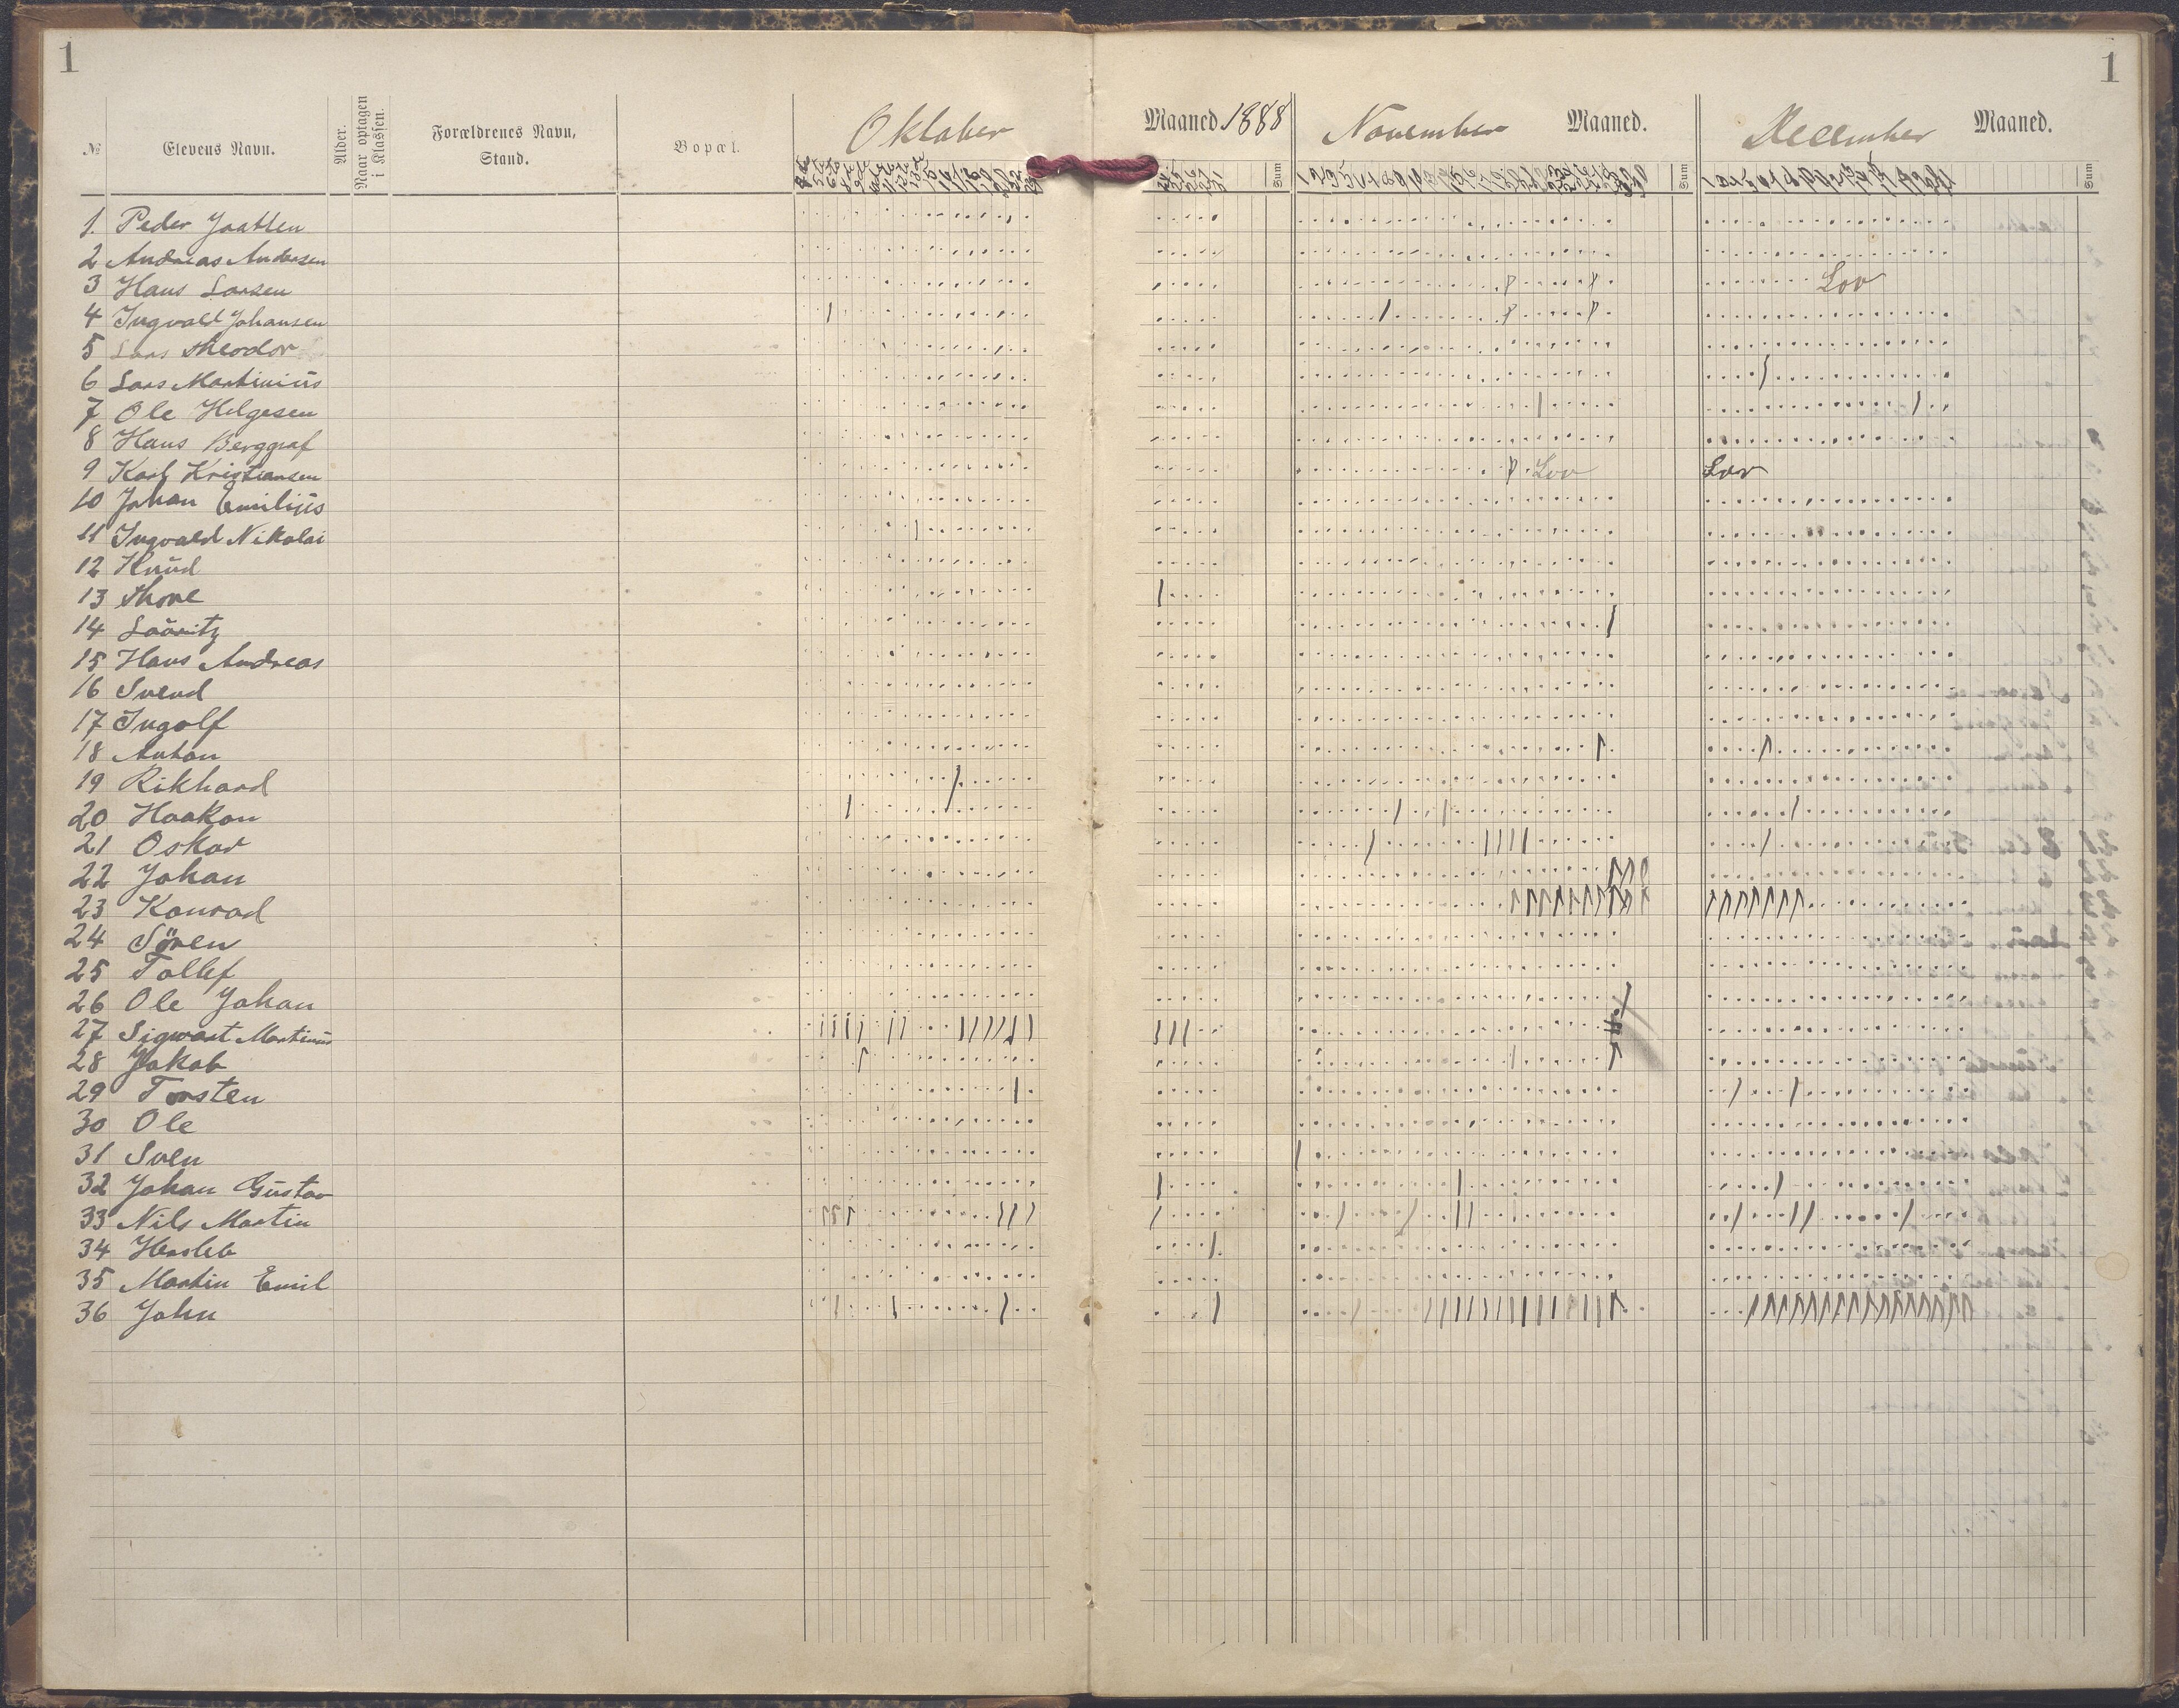 1
1
№
Elevens Navn.
Alder.
Naar optagen i Klassen.
Forældrenes Navn, Stand.
Bopæl.
Oktober Maaned 1888
November Maaned.
December Maaned.
Sum
Sum
Sum
1. Peder Jaatten
2 Andreas Andersen
3 Hans Larsen Lov
4 Ingvald Johansen
5 Lars Theodor
6 Lars Martinius
7 Ole Helgesen
8 Hans Berggraf
9 Karl Kristiansen Lov Lov
10 Johan Emilius
11 Ingvald Nikolai
12 Knud
13 Thore
14 Lauritz
15 Hans Andreas
16 Svend
17 Ingolf
18 Anton
19 Rikhard
20 Haakon
21 Oskar
22 Johan
23 Konrad
24 Sören
25 Tollef
26 Ole Johan
27 Sigwart Martinius
28 Jakob
29 Torsten
30 Ole
31 Sven
32 Johan Gustav
33 Nils Martin
34 Hersleb
35 Martin Emil
36 John